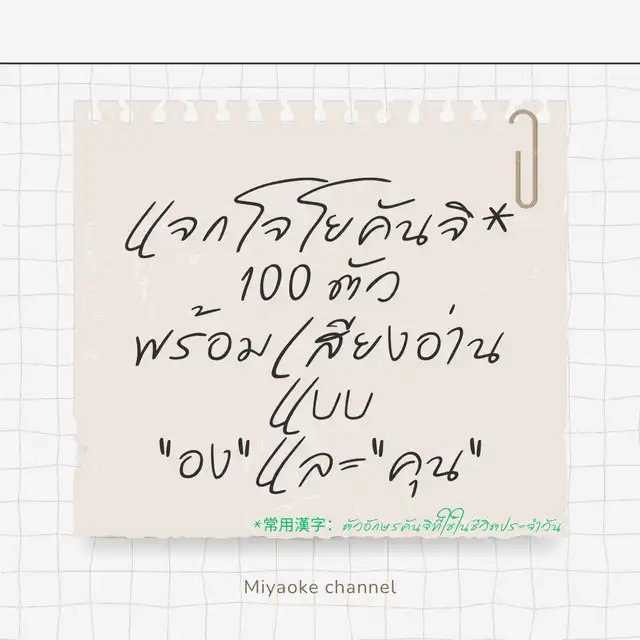 แจกโจโยคันจิ*
100 ตัว
พร้อมเสียงอ่าน
แบบ
"อง"และ"คุน"
*常用漢字: ตัวอักษรคันจิที่ใช้ในชีวิตประจำวัน
Miyaoke channel